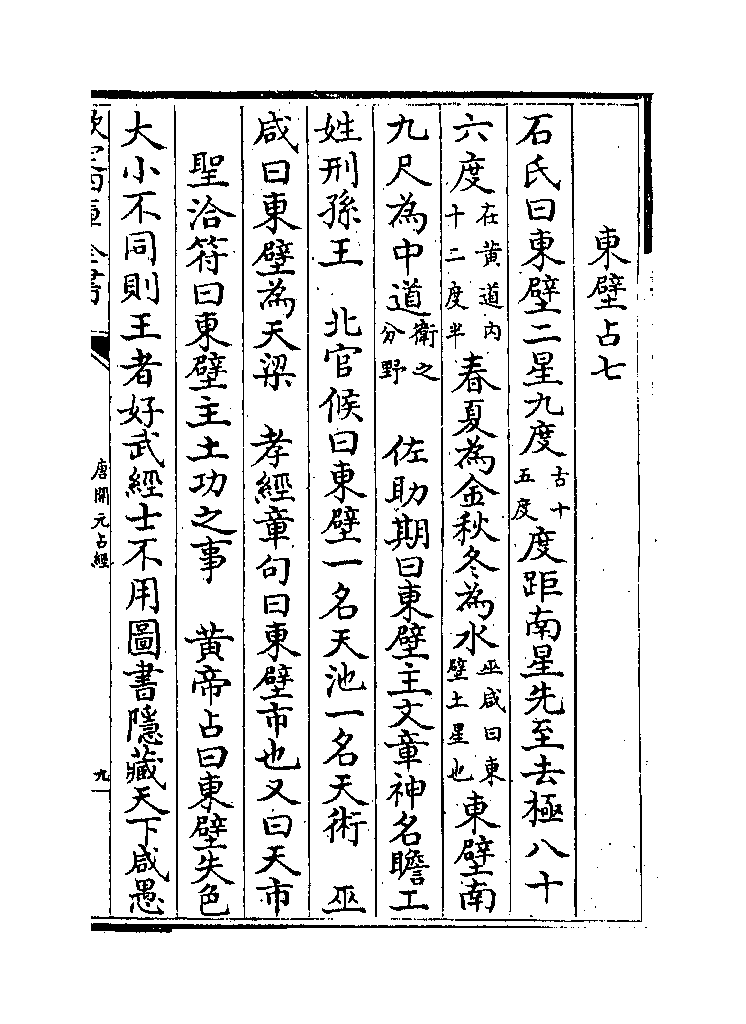 東壁占七
石氏曰東壁二星九度古十五度度距南星先至去極八十
六度在黄道内十二度半春夏為金秋冬為水巫咸曰東壁土星也東壁南
九尺為中道衛之分野 佐助期曰東壁主文章神名瞻工
姓刑孫王 北官候曰東壁一名天池一名天術 巫
咸曰東壁為天梁 孝經章句曰東壁市也又曰天市
聖洽符曰東壁主土功之事 黄帝占曰東壁失色
大小不同則王者好武經士不用圖書隱藏天下咸愚
唐開元占經
九